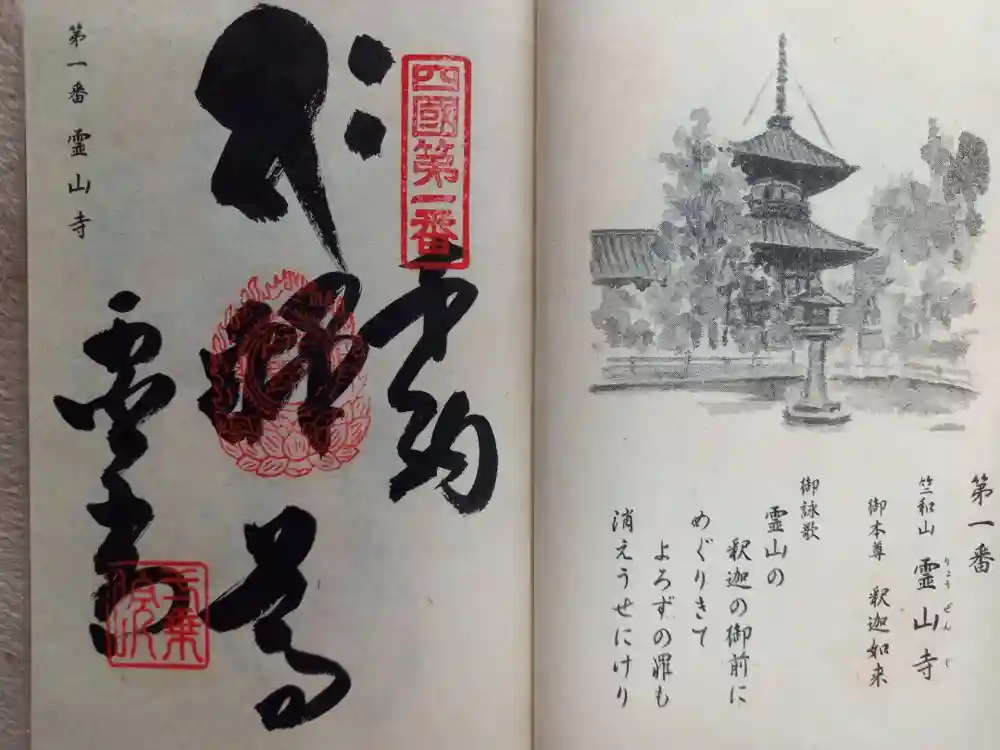 第一番
竺和山 霊山寺
りょうぜんじ
御本尊 釈迦如来
御詠歌
霊山の
釈迦の御前に
めぐりきて
よろずの罪も
消えうせにけり
四國第一番
奉納
釋尊
霊山寺
第一番 霊山寺